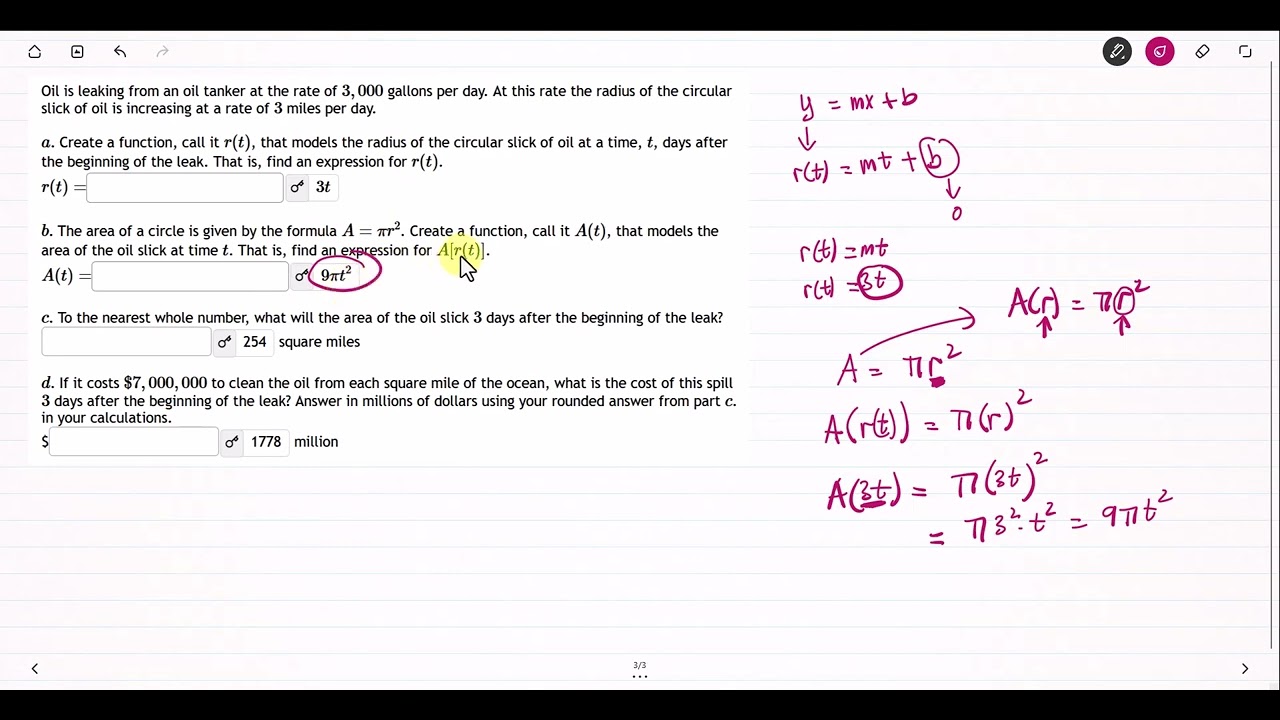 Oil is leaking from an oil tanker at the rate of 3,000 gallons per day. At this rate the radius of the circular
slick of oil is increasing at a rate of 3 miles per day.
a. Create a function, call it r(t), that models the radius of the circular slick of oil at a time, t, days after
the beginning of the leak. That is, find an expression for r(t).
r(t) = 3t
b. The area of a circle is given by the formula A = πr². Create a function, call it A(t), that models the
area of the oil slick at time t. That is, find an expression for A[r(t)].
A(t) = 9πt²
c. To the nearest whole number, what will the area of the oil slick 3 days after the beginning of the leak?
254 square miles
d. If it costs $7,000,000 to clean the oil from each square mile of the ocean, what is the cost of this spill
3 days after the beginning of the leak? Answer in millions of dollars using your rounded answer from part c.
in your calculations.
$ 1778 million
y = mx + b
r(t) = mt + b
0
r(t) = mt
r(t) = 3t
A(r) = πr²
A = πr²
A(r(t)) = π(r)²
A(3t) = π(3t)²
= π3²·t² = 9πt²
3/3